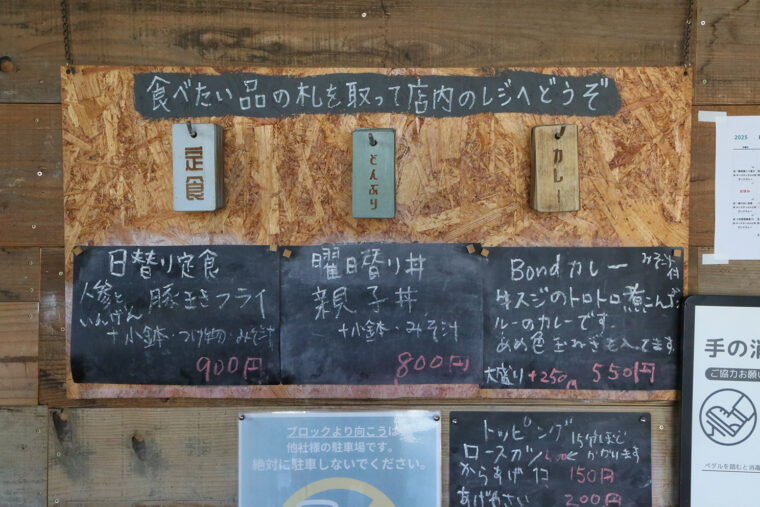 食べたい品の札を取って店内のレジへどうぞ
定食
どんぶり
カレー
日替り定食
人参と
いんげん
豚巻きフライ
+小鉢・つけ物・みそ汁
900円
曜日替り丼
親子丼
+小鉢・みそ汁
800円
Bondカレー
みそ汁付
牛スジのトロトロ煮こんだ
ルーのカレーです。
あめ色玉ねぎも入ってます。
大盛り +250円 550円
2025
手の消
ご協力お願い
ペダルを踏むと消毒
ブロックより向こうは
他社様の駐車場です。
絶対に駐車しないでください。
トッピング
15分ほど
かかります
ロースカツ
からあげ 1コ 150円
あげやさい 200円